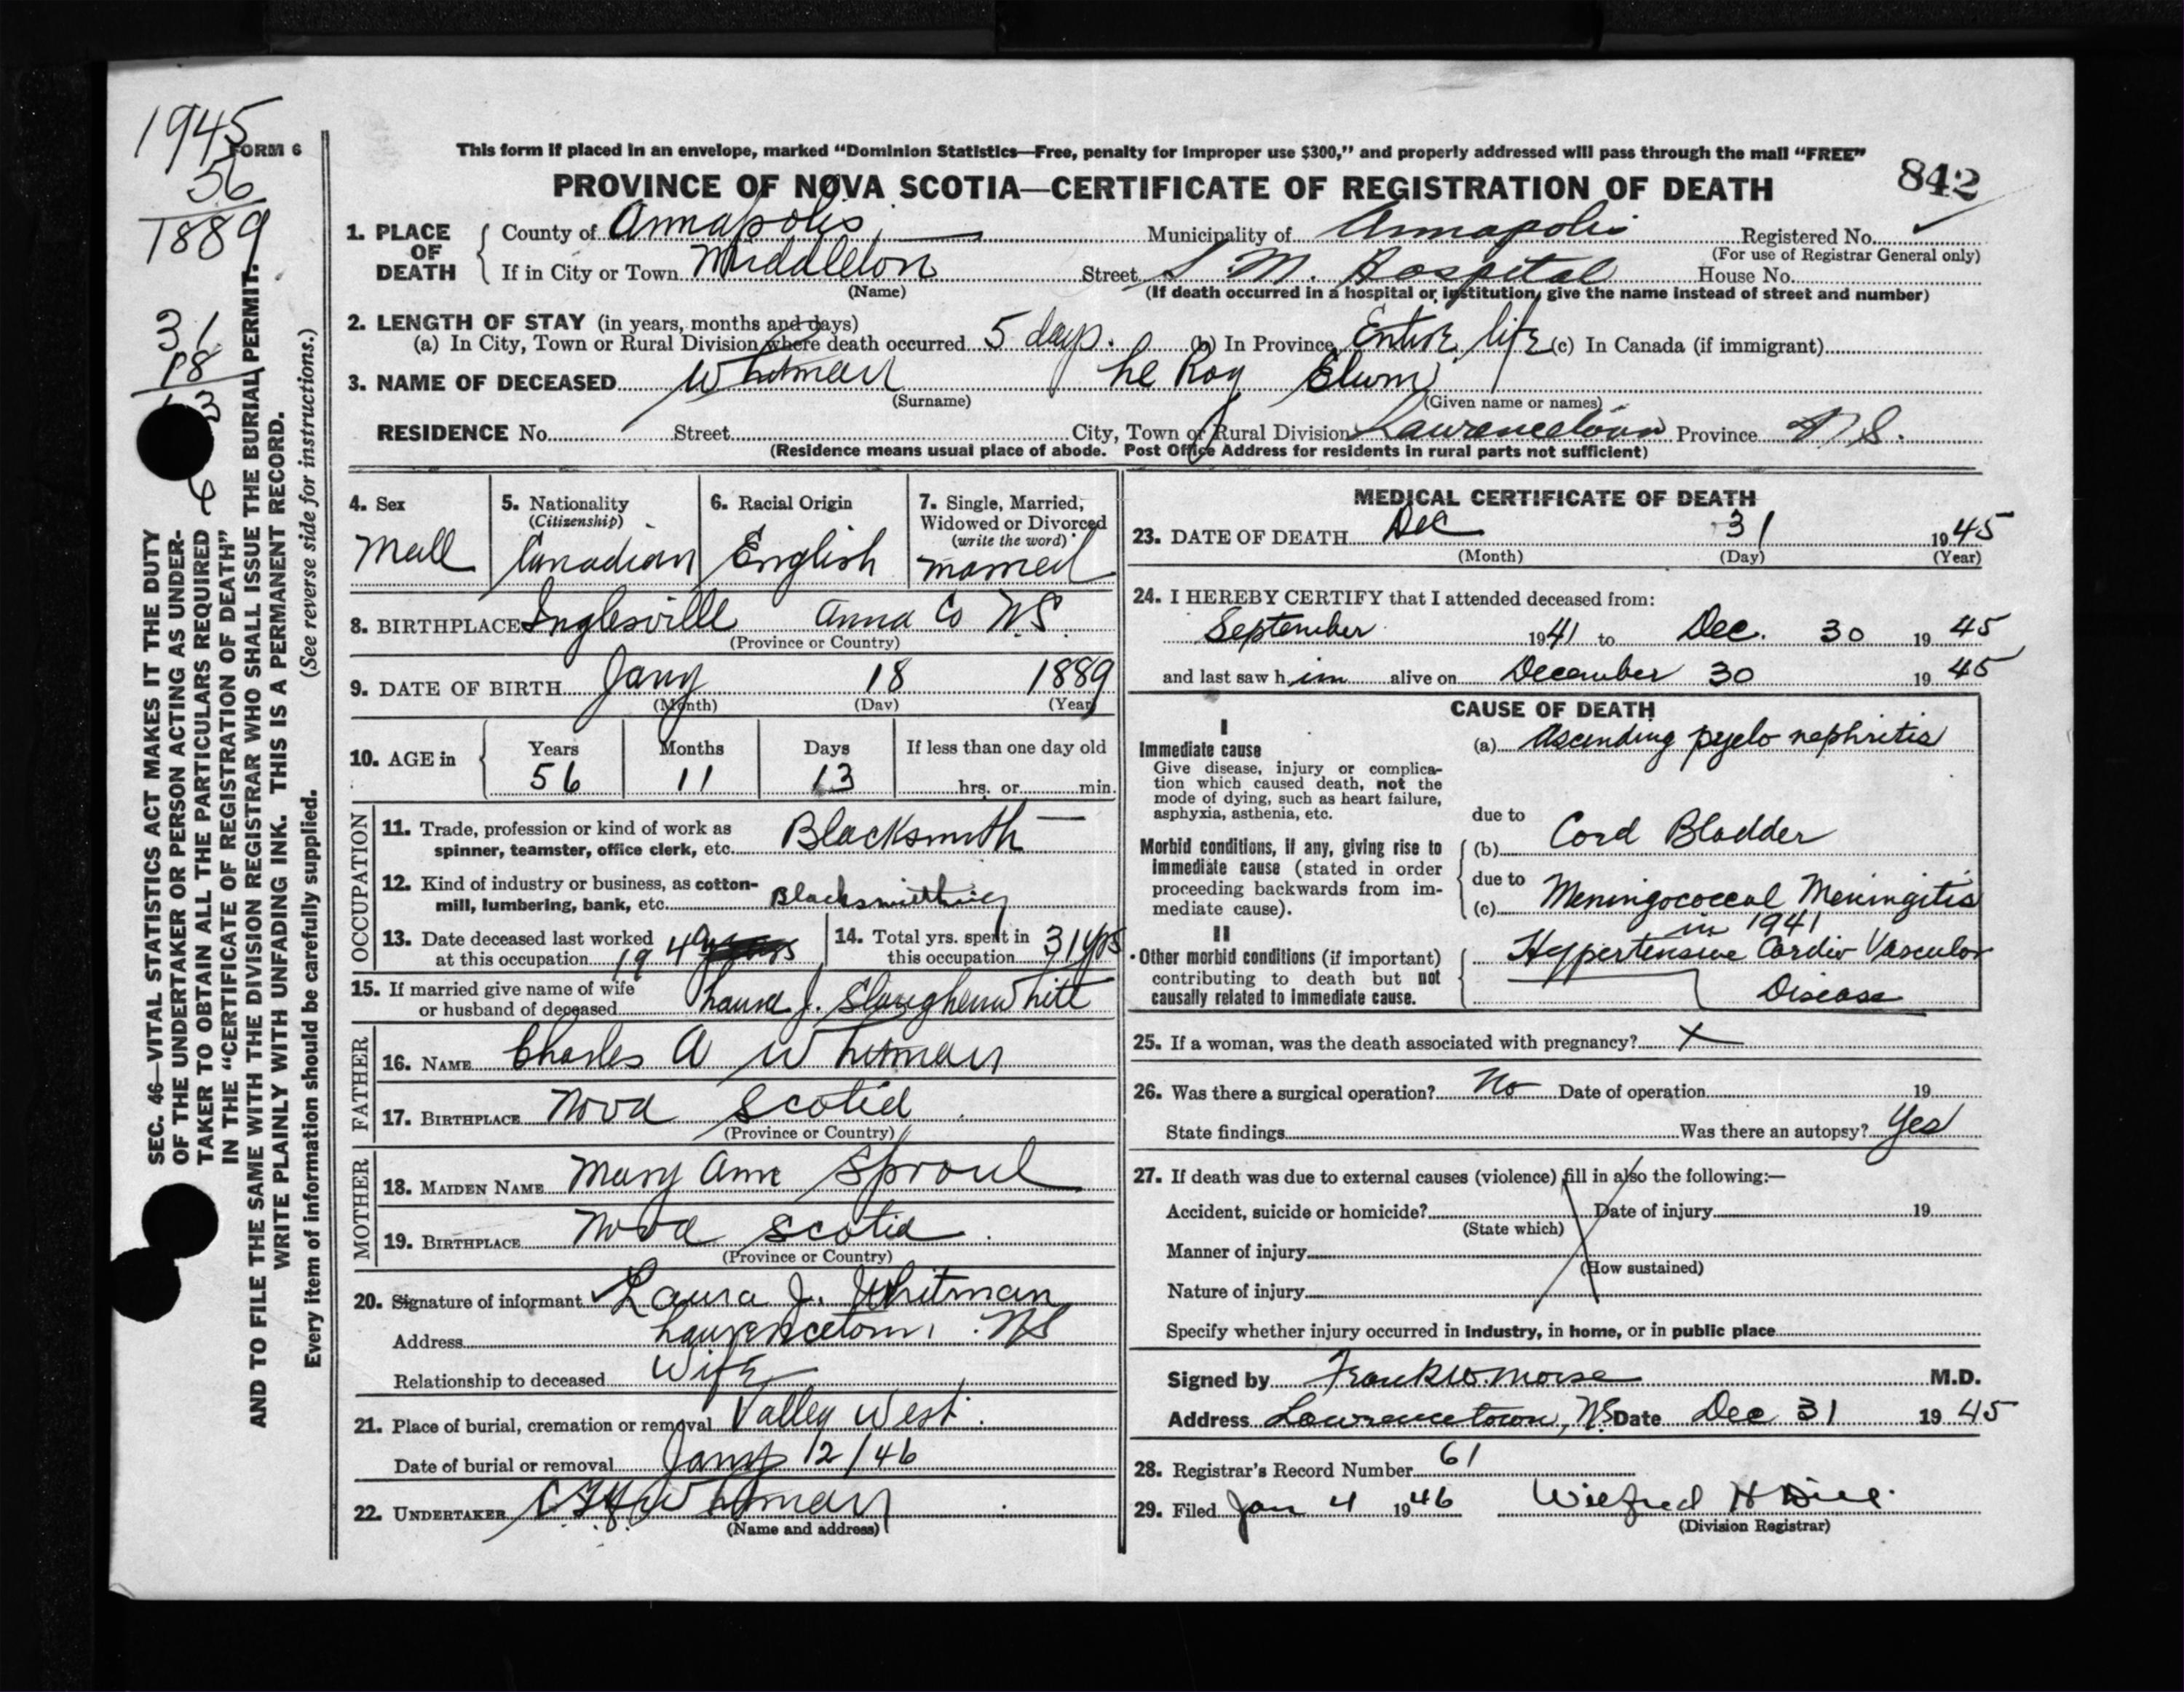 1945
56
1889
31
18
13
FORM 6
This form if placed in an envelope, marked “Dominion Statistics—Free, penalty for improper use $300,” and properly addressed will pass through the mail “FREE”
PROVINCE OF NOVA SCOTIA—CERTIFICATE OF REGISTRATION OF DEATH
842
1. PLACE OF DEATH
County of Annapolis Municipality of Annapolis Registered No.
(For use of Registrar General only)
If in City or Town Middleton Street S. M. Hospital House No.
(Name) (If death occurred in a hospital or institution, give the name instead of street and number)
2. LENGTH OF STAY (in years, months and days)
(a) In City, Town or Rural Division where death occurred 5 days. (b) In Province Entire life (c) In Canada (if immigrant)
3. NAME OF DECEASED Whitman Le Roy
(Surname) (Given name or names)
RESIDENCE No. Street City, Town or Rural Division Lawrencetown Province N.S.
(Residence means usual place of abode. Post Office Address for residents in rural parts not sufficient)
4. Sex
Male
5. Nationality
(Citizenship)
Canadian
6. Racial Origin
English
7. Single, Married, Widowed or Divorced
(write the word)
married
8. BIRTHPLACE Inglesville Anna Co N.S.
(Province or Country)
9. DATE OF BIRTH Jany 18 1889
(Month) (Day) (Year)
10. AGE in
Years Months Days If less than one day old
56 11 13 hrs. or min.
OCCUPATION
11. Trade, profession or kind of work as
spinner, teamster, office clerk, etc. Blacksmith
12. Kind of industry or business, as cotton-
mill, lumbering, bank, etc. Blacksmithing
13. Date deceased last worked
at this occupation
14. Total yrs. spent in
this occupation 31 yrs
15. If married give name of wife
or husband of deceased Laura J. Slaughenwhite
FATHER
16. NAME Charles A Whitman
17. BIRTHPLACE Nova Scotia
(Province or Country)
MOTHER
18. MAIDEN NAME Mary Ann Sproul
19. BIRTHPLACE Nova Scotia
(Province or Country)
20. Signature of informant Laura J. Whitman
Address Lawrencetown, NS
Relationship to deceased Wife
21. Place of burial, cremation or removal Valley West.
Date of burial or removal Jany 2/46
22. UNDERTAKER Whitman
(Name and address)
MEDICAL CERTIFICATE OF DEATH
23. DATE OF DEATH Dec 31 1945
(Month) (Day) (Year)
24. I HEREBY CERTIFY that I attended deceased from:
September 1941 to Dec. 30 1945
and last saw h im alive on December 30 1945
CAUSE OF DEATH
I
Immediate cause
Give disease, injury or complica-
tion which caused death, not the
mode of dying, such as heart failure,
asphyxia, asthenia, etc.
(a) Ascending pyelo nephritis
due to
Morbid conditions, if any, giving rise to
immediate cause (stated in order
proceeding backwards from im-
mediate cause).
(b) Cord Bladder
due to
(c) Meningococcal Meningitis
in 1941
II
Other morbid conditions (if important)
contributing to death but not
causally related to immediate cause.
Hypertensive Cardio Vascular
Disease
25. If a woman, was the death associated with pregnancy? X
26. Was there a surgical operation? No Date of operation 19
State findings Was there an autopsy? Yes
27. If death was due to external causes (violence) fill in also the following:—
Accident, suicide or homicide? Date of injury 19
(State which)
Manner of injury
(How sustained)
Nature of injury
Specify whether injury occurred in industry, in home, or in public place
Signed by Frank W Morse M.D.
Address Lawrencetown, NS Date Dec 31 1945
28. Registrar's Record Number 61
29. Filed Jan 4 1946 Wilfred H
(Division Registrar)
SEC. 46—VITAL STATISTICS ACT MAKES IT THE DUTY
OF THE UNDERTAKER OR PERSON ACTING AS UNDER-
TAKER TO OBTAIN ALL THE PARTICULARS REQUIRED
IN THE “CERTIFICATE OF REGISTRATION OF DEATH”
AND TO FILE THE SAME WITH THE DIVISION REGISTRAR WHO SHALL ISSUE THE BURIAL PERMIT.
WRITE PLAINLY WITH UNFADING INK. THIS IS A PERMANENT RECORD.
Every item of information should be carefully supplied. (See reverse side for instructions.)